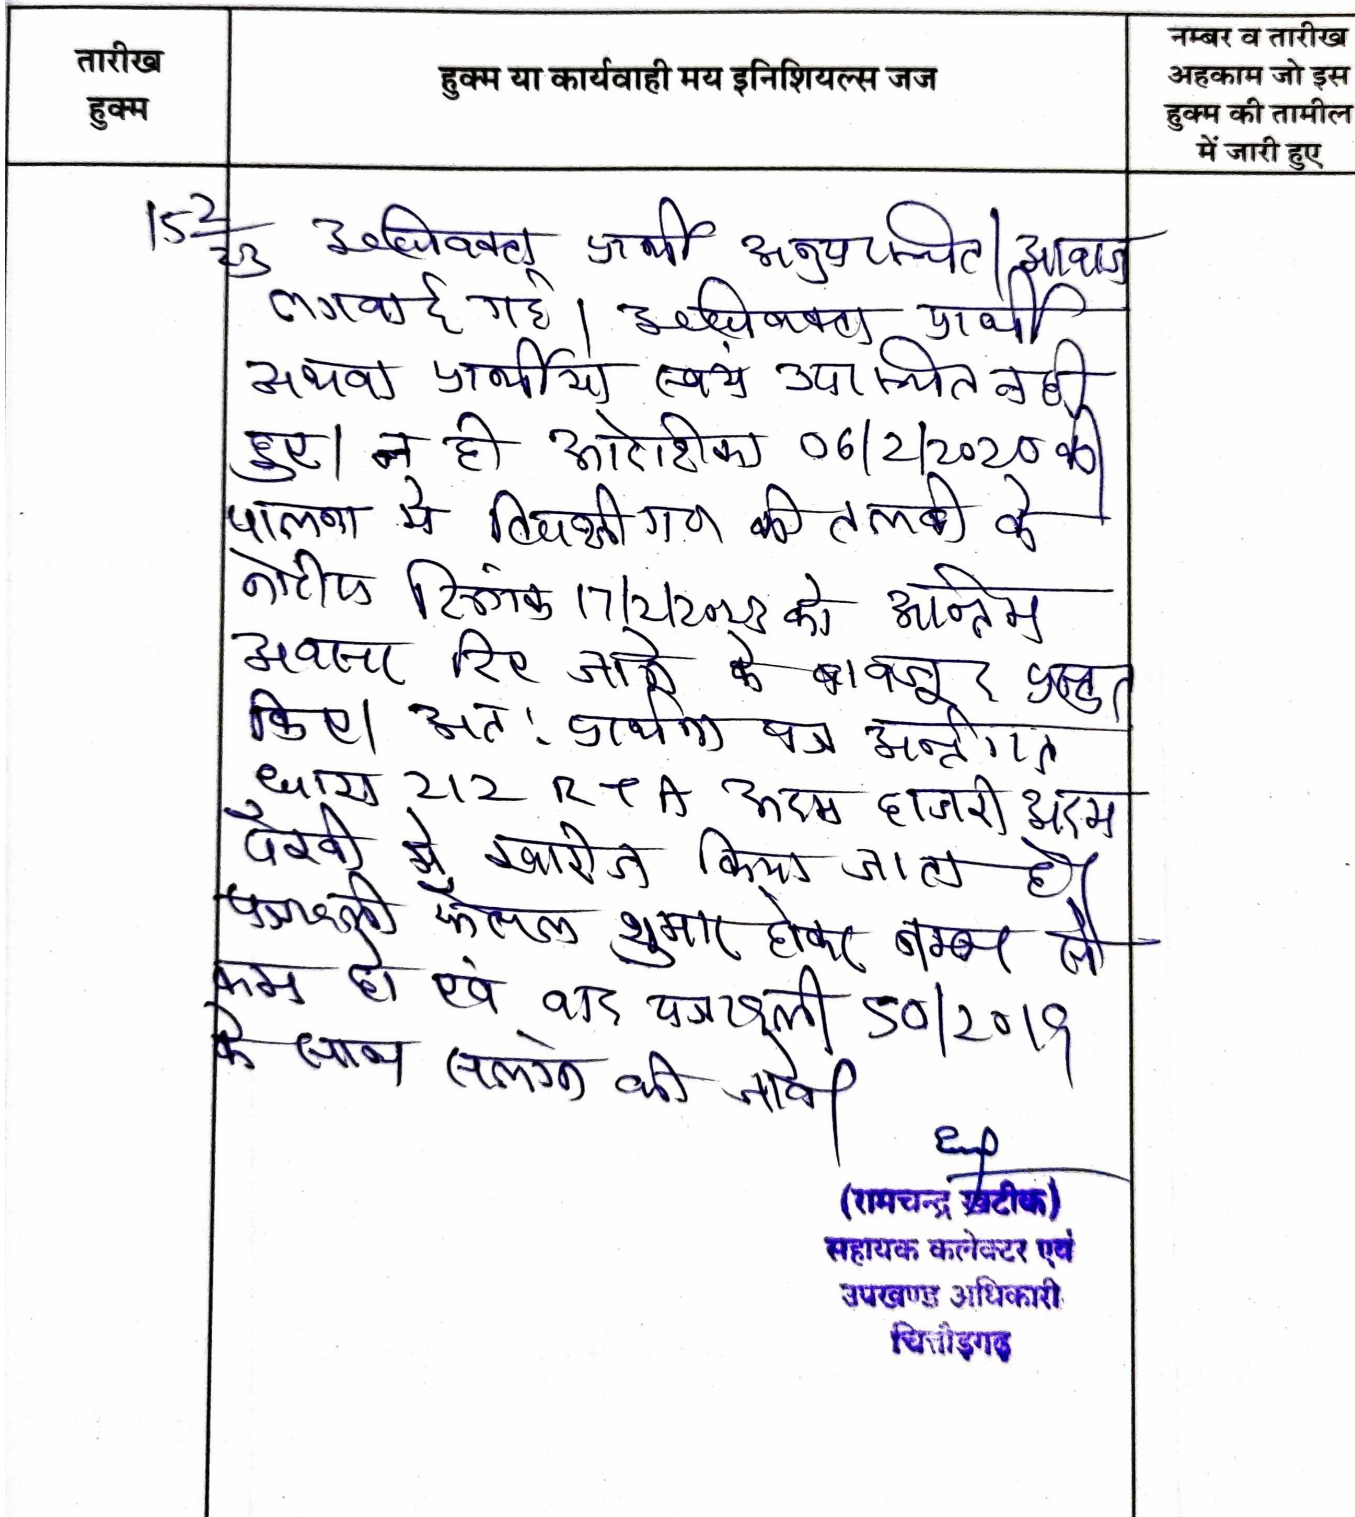 तारीख
हुक्म
हुक्म या कार्यवाही मय इनिशियल्स जज
नम्बर व तारीख
अहकाम जो इस
हुक्म की तामील
में जारी हुए
15 2/23 अधिवक्ता प्रार्थी अनुपस्थित। आवाज
लगवाई गई। अधिवक्ता प्रार्थी
अथवा प्रार्थीया स्वयं उपस्थित नही
हुए। न ही आदेशीका 06/2/2020 की
पालना मे विपक्षीगण की तलबी के
नोटीस दिनांक 17/2/ को अन्तिम
अवसर दिए जाने के बावजूद प्रस्तुत
किए। अतः प्रार्थना पत्र अर्न्तगत
धारा 212 R T A अदम हाजरी अदम
पैरवी मे खारीज किया जाता है।
पत्रावली फैसल शुमार होकर नम्बर से
कम हो एवं वाद पत्रावली 50/2019
के साथ सलंग्न की जावे।
(रामचन्द्र खटीक)
सहायक कलेक्टर एवं
उपखण्ड अधिकारी
चित्तौड़गढ़